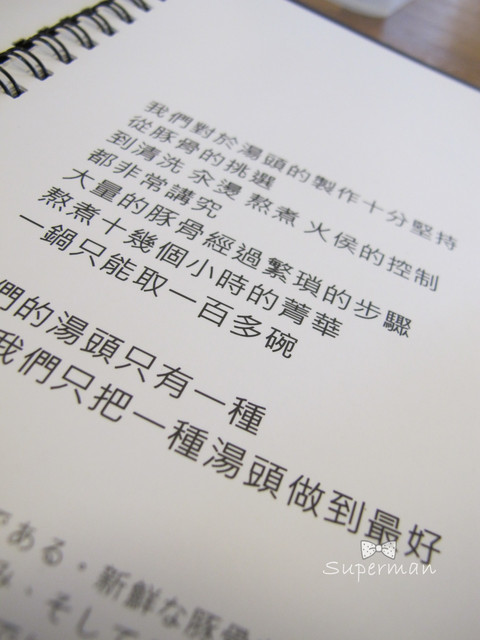 我們對於湯頭的製作十分堅持
從豚骨的挑選
到清洗 汆燙 熬煮 火侯的控制
都非常講究
大量的豚骨經過繁瑣的步驟
熬煮十幾個小時的菁華
一鍋只能取一百多碗
們的湯頭只有一種
我們只把一種湯頭做到最好
である・新鮮な豚骨
そして
Superman